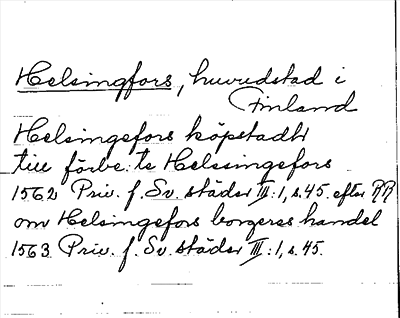 Helsingfors, huvudstad i
Finland
Helsingefors köpstadtt
till förbe: te Helssingefors
1562 Priv. f. Sv. städer III:1, s. 45. efter RR
om Helsingefors borgeres handel
1563 Priv. f. Sv. städer III:1, s. 45.